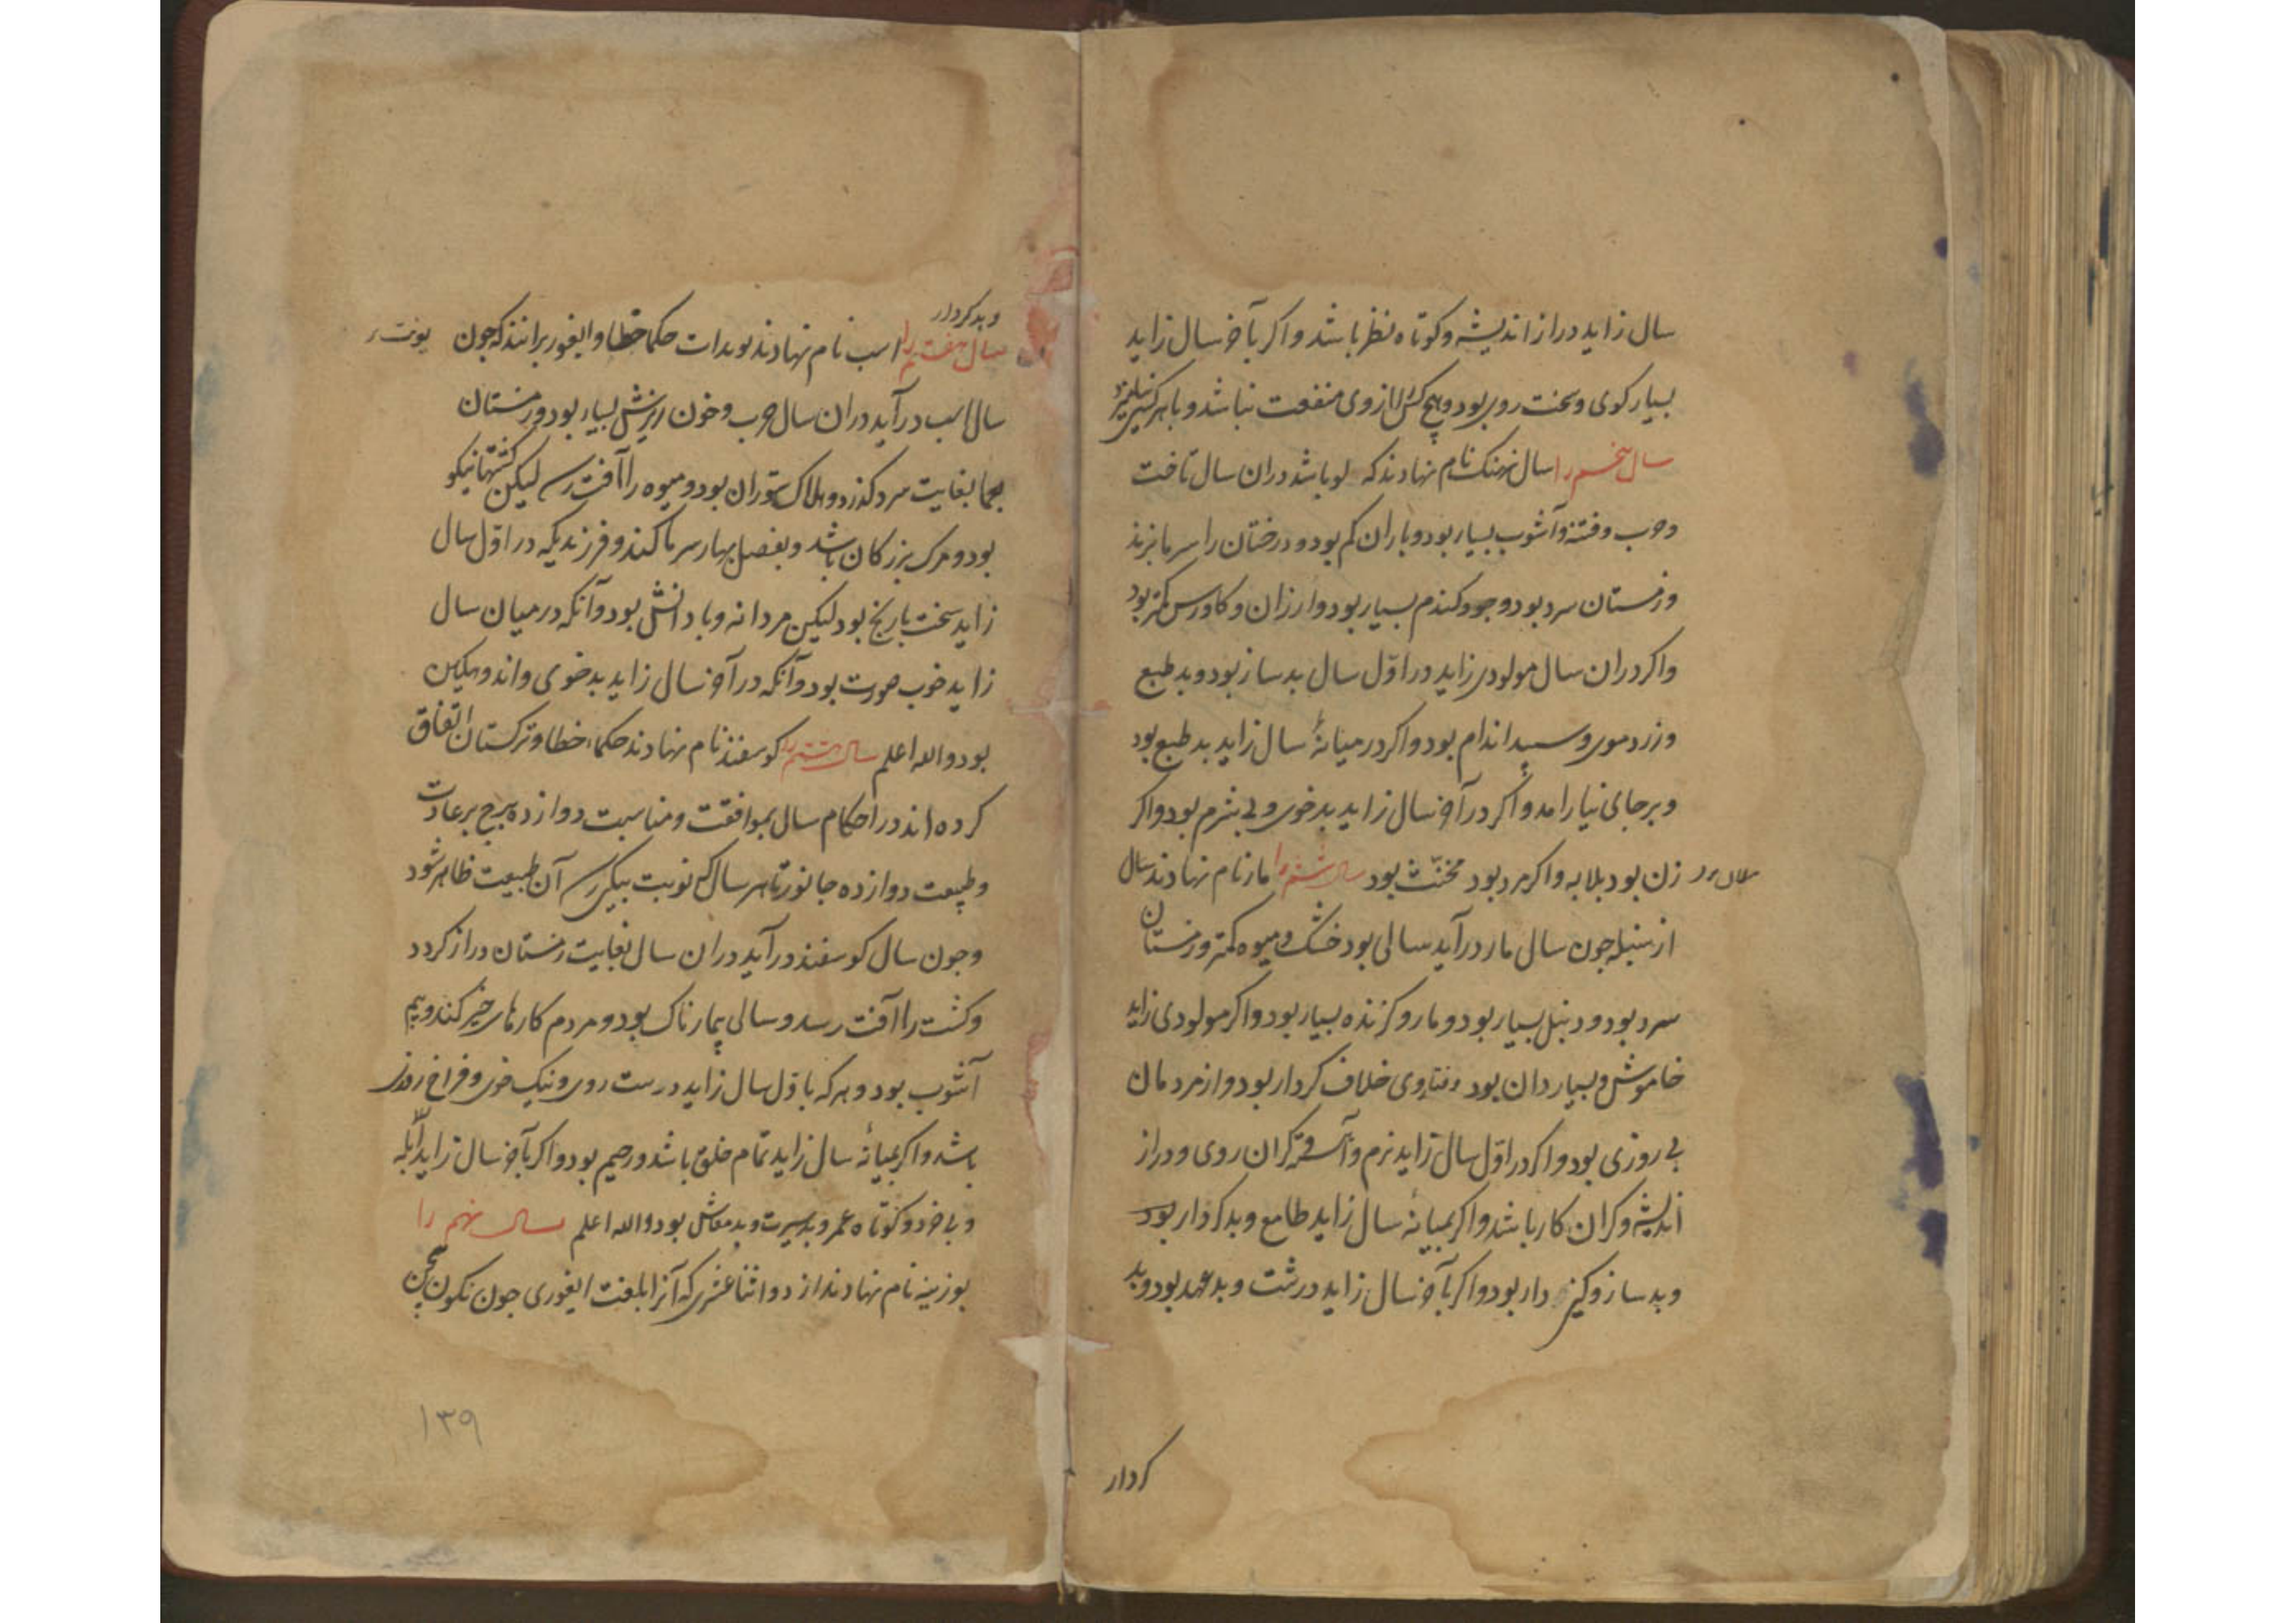 سال زاید دراز اندیشه و کوتاه نظر باشد و اکر بآخر سال زاید
بسیار کوی و سخت روی بود و هیچ کس را ازوی منفعت نباشد و با هر کسی
سال پنجم را سال نهنک نام نهادند که لو باشد دران سال تاخت
و حرب و فتنه و آشوب بسیار بود و باران کم بود و درختان را سرما بزند
و زمستان سرد بود و جو و کندم بسیار بود و ارزان و کاورس کمتر بود
و اکر دران سال مولودی زاید در اوّل سال بد ساز بود و بد طبع
و زرد موی و سپید اندام بود و اکر در میانهٔ سال زاید بد طبع بود
و بر جای نیارامد و اکر در آخر سال زاید بد خوی و بی شرم بود و اکر
زن بود بلایه و اکر مرد بود مخنّث بود سال ششم را مار نام نهادند سال
از سنبله جون سال مار درآید سالی بود خشک و میوه کمتر و زمستان
سرد بود و دنبل بسیار بود و مار و کزنده بسیار بود و اکر مولودی زاید
خاموش و بسیار دان بود و فتاوی خلاف کردار بود و از مردمان
بی روزی بود و اکر در اوّل سال زاید نرم و آهسته کران روی و دراز
اندیشه و کران کار باشد و اکر بمیانهٔ سال زاید طامع و بد کردار بود
و بد ساز و کین دار بود و اکر بآخر سال زاید درشت و بد عهد بود و بد
کردار
و بد کردار
سال هفتم را اسب نام نهادند حکما خطا و ایغور برانند که جون
یونت
سال اسب درآید دران سال حرب و خون ریزش بسیار بود و زمستان
بغایت سرد کذرد و هلاک ستوران بود و میوه را آفت رسد لیکن کشتها نیکو
بود و مرک بزرکان باشد و بفصل بهار سرما کند و فرزندیکه در اوّل سال
زاید سخت با رنج بود لیکن مردانه و با دانش بود و آنکه در میان سال
زاید خوب صورت بود و آنکه در آخر سال زاید بد خوی و اندوهکین
بود والله اعلم سال هشتم را کوسفند نام نهادند حکماء خطا و ترکستان اتفاق
کرده اند در احکام سال بموافقت و مناسبت دوازده برج بر عادت
و طبیعت دوازده جانور تا هر سال که نوبت بیکی رسد آن طبیعت ظاهر شود
و جون سال کوسفند درآید دران سال بغایت زمستان دراز کردد
و کشت را آفت رسد و سالی بیمارناک بود و مردم کارهای خیر کنند و بیم
آشوب بود و هر که باوّل سال زاید درست روی و نیک خوی و فراخ روزی
باشد و اکر بمیانهٔ سال زاید تمام خلق باشد و رحیم بود و اکر بآخر سال زاید ابله
و بی خرد و کوتاه عمر و بد سیرت و بد معاش بود والله اعلم سال نهم را
بوزینه نام نهادند از دوازده اثنا عشری که آنرا بلغت ایغوری جون نکون
۱۳۹